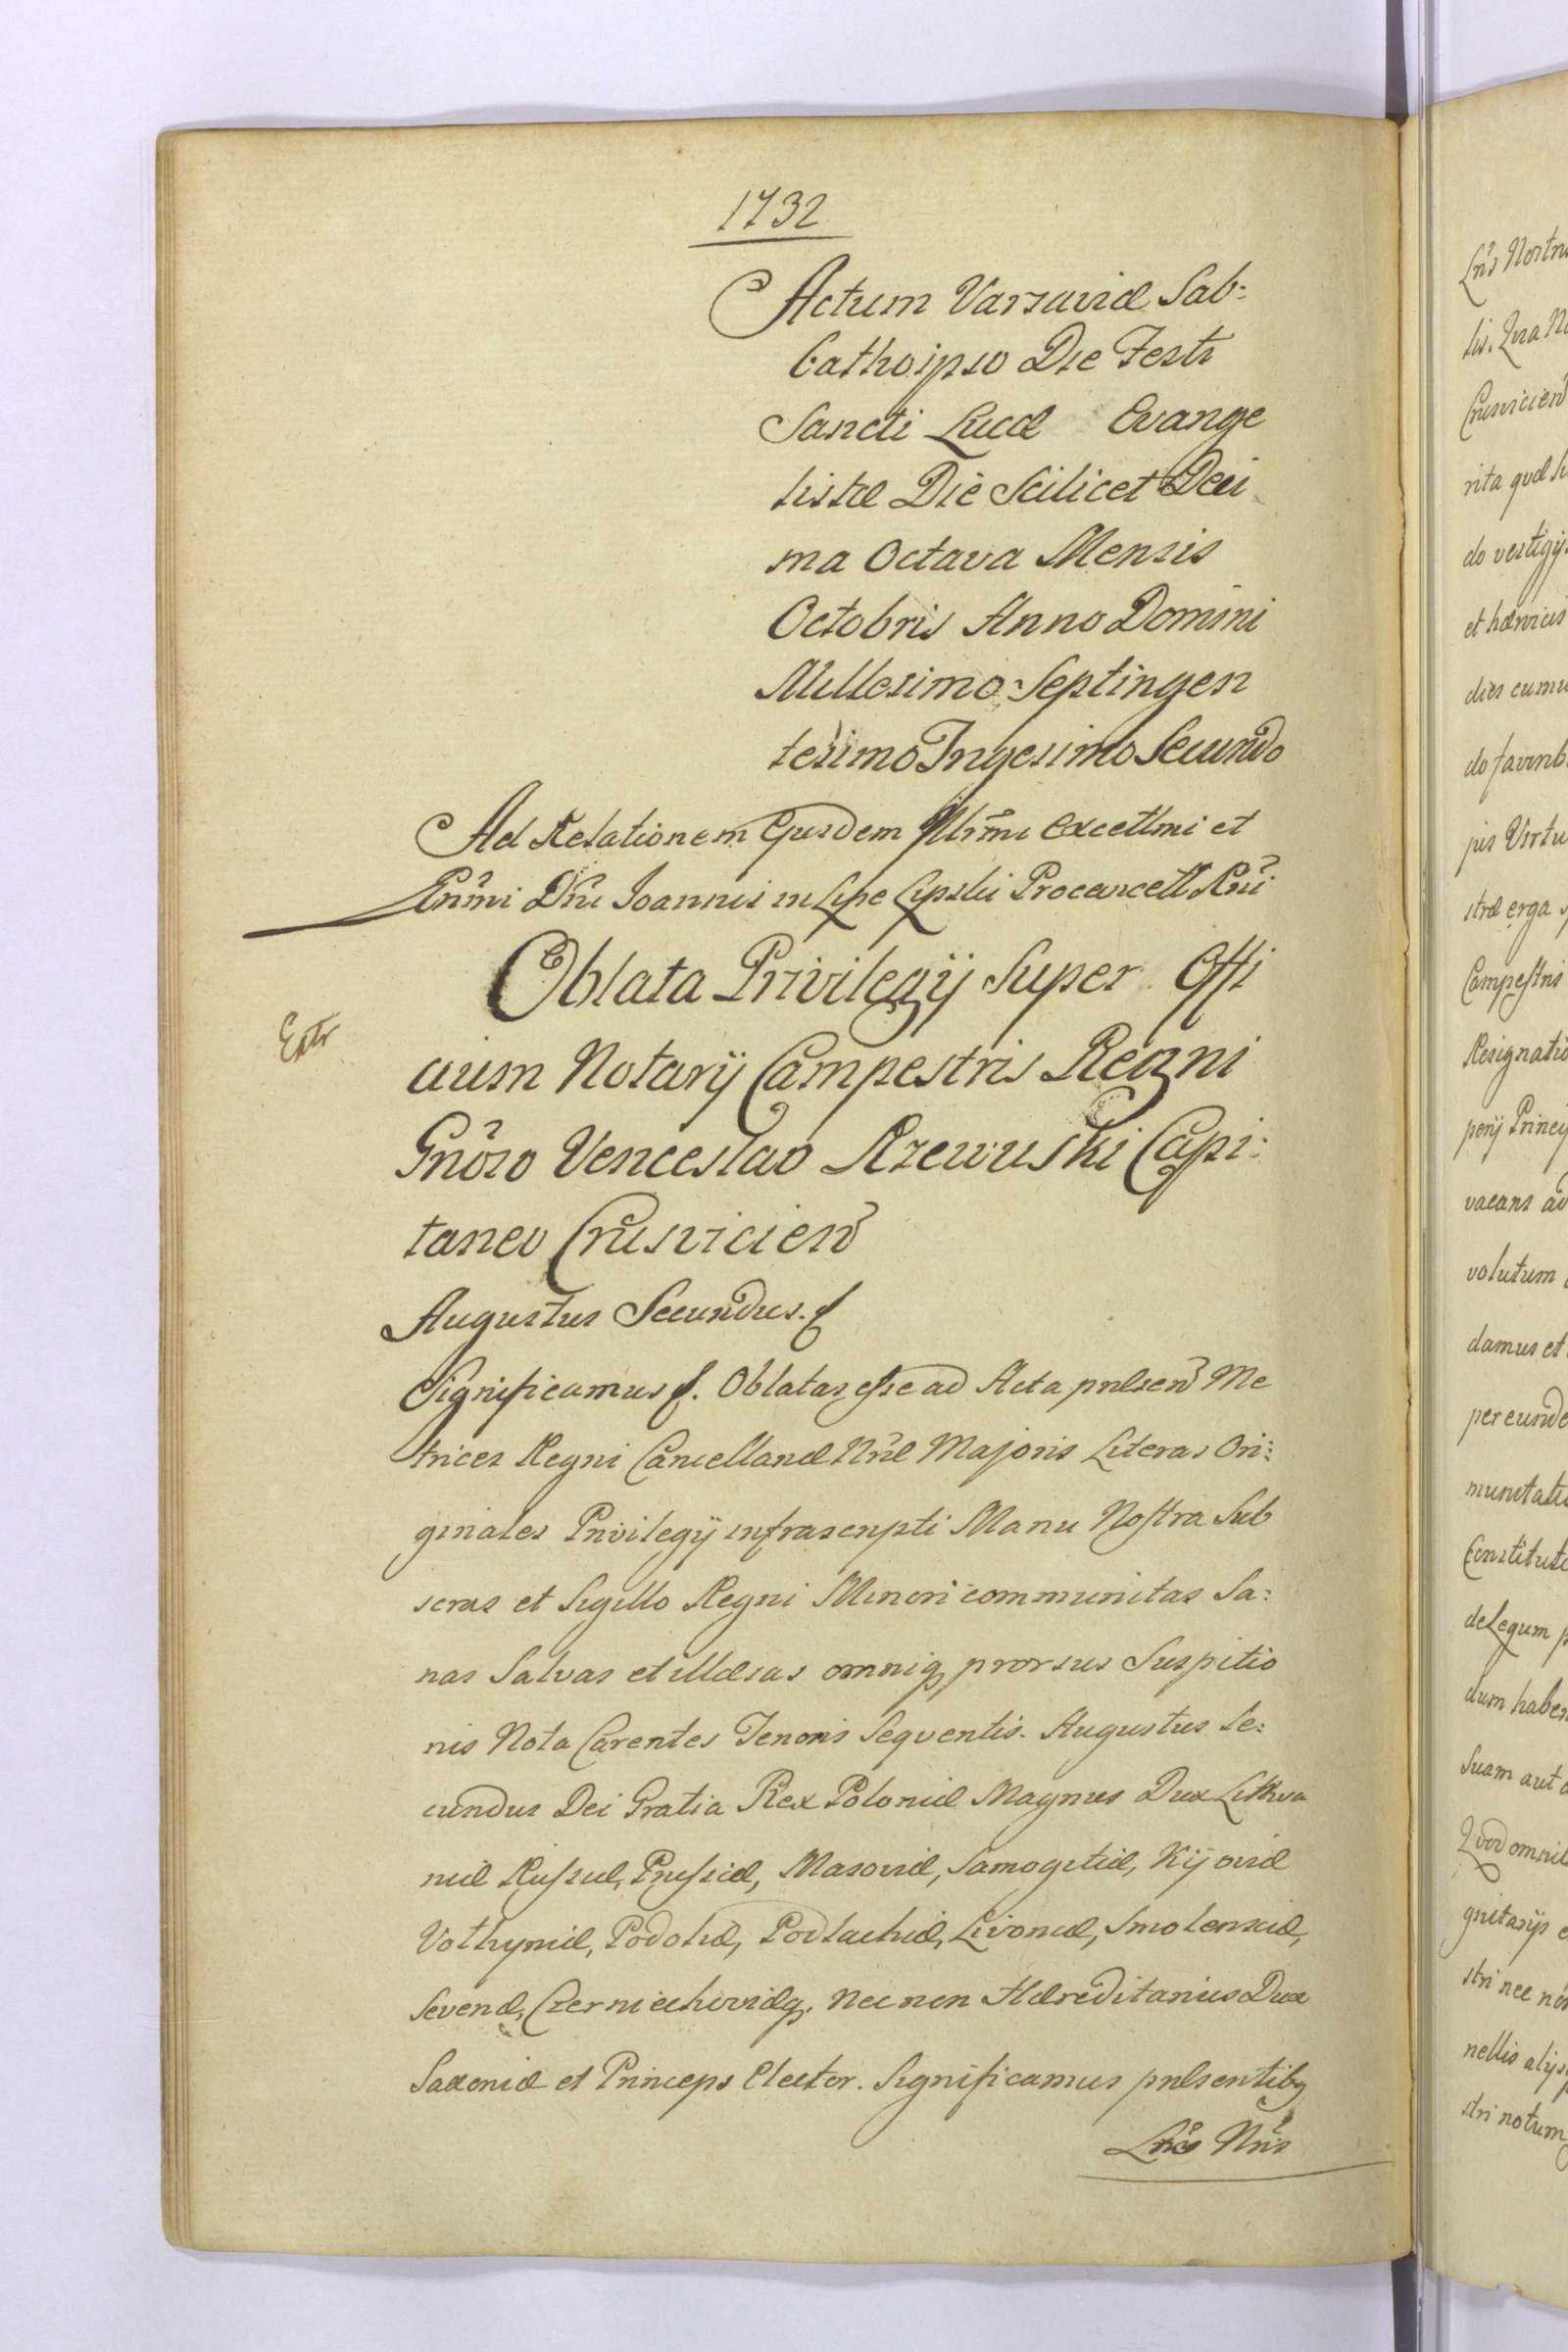 1732
Actum Varsaviæ Sab:
bathoipso Die Festi
Sancti Lucæ Evange
listæ Die Scilicet Deci
ma Octava Mensis
Octobris Anno Domini
Millesimo Septingen
tesimo Trigesimo Secundo
Ad Relationem Ejusdem Illrmi Excellmi et
Rnmi Dni Joannis in Lipe Lipski Procancell Rni
Oblata Privilegij Super Offi
cium Notarij Campestris Regni
Gnoso Venceslao Rzewuski Capi:
taneo Crusvicien
Augustus Secundus.
Significamus. Oblatas esse ad Acta præsen Me
trices Regni Cancellariæ Nræ Majoris Literas Ori:
ginales Privilegij infrascripti Manu Nostra Sub
scras et Sigillo Regni Minori communitas Sa:
nas Salvas et illæsas omniq prorsus Suspitio
nis Nota Carentes Tenoris Seqventis. Augustus Se:
cundus Dei Gratia Rex Poloniæ Magnus Dux Lithva
niæ Russiæ, Prussiæ, Masoviæ, Samogitiæ, Kijoviæ
Volhyniæ, Podoliæ, Podlachiæ, Livoniæ, Smolensciæ,
Severiæ, Czerniechoviæq. Nec non Hæreditarius Dux
Saxoniæ et Princeps Elector. Significamus præsentibq
Lris Nris
Lris Nostris
Crusvicien
rita qvæ
do vestigij
et hæroicis
dies
do
pis Virtu
stræ erga
Campestris
Resignatio
perij Princi
vacans ad
volutum
damus et
per eunde
munitatis
Constituti
de Legum
dum haben
suam aut
Qvod omnib
gnitarijs
stri nec non
nellis alijs
stri notum